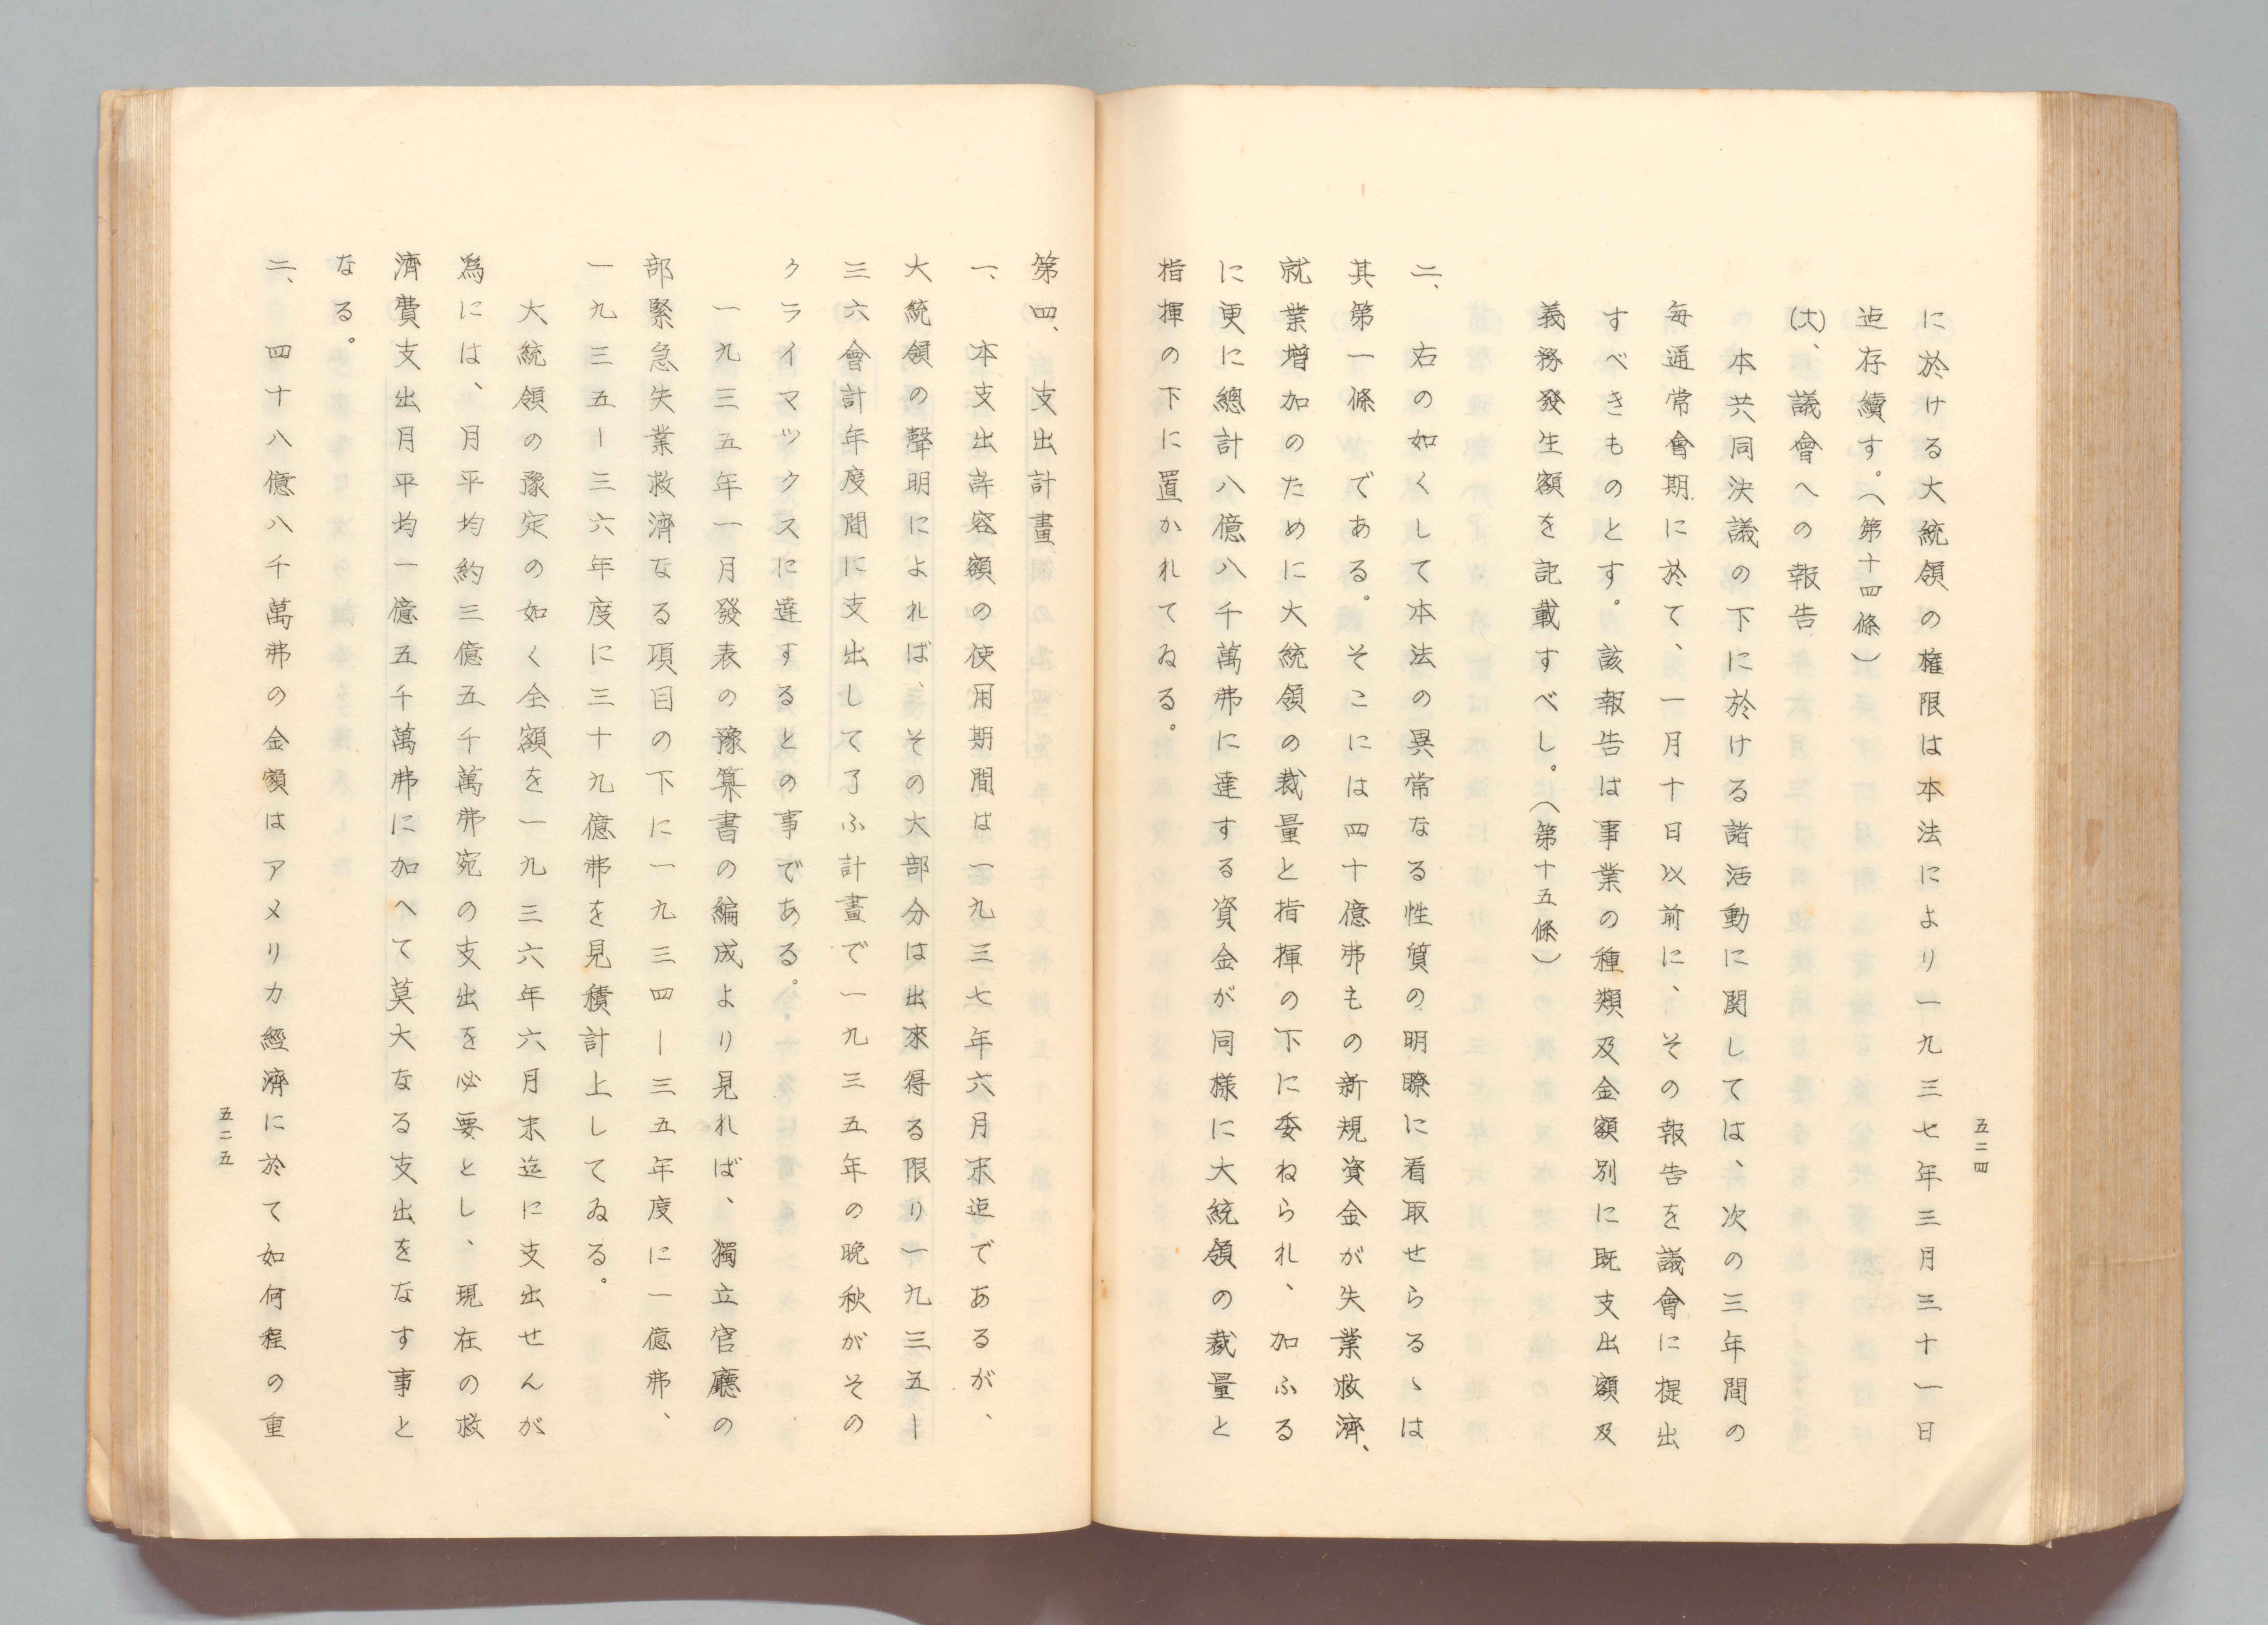 に於ける大統領の権限は本法により一九三七年三月三十一日
迄存續す。（第十四條）
(六)、議會への報告
本共同決議の下に於ける諸活動に関しては、次の三年間の
毎通常會期に於て、一月十日以前に、その報告を議會に提出
すべきものとす。該報告は事業の種類及金額別に既支出額及
義務發生額を記載すべし。（第十五條）
二、右の如くして本法の異常なる性質の明瞭に看取せらるゝは
其第一條である。そこには四十億弗もの新規資金が失業救濟、
就業増加のために大統領の裁量と指揮の下に委ねられ、加ふる
に更に總計八億八千萬弗に達する資金が同様に大統領の裁量と
指揮の下に置かれてゐる。
五二四
第四、支出計畫
一、本支出許容額の使用期間は一九三七年六月末迄であるが、
大統領の聲明によれば、その大部分は出來得る限り一九三五ー
三六會計年度間に支出して了ふ計畫で一九三五年の晩秋がその
クライマックスに達するとの事である。
一九三五年一月發表の豫算書の編成より見れば、獨立官廳の
部緊急失業救濟なる項目の下に一九三四ー三五年度に一億弗、
一九三五ー三六年度に三十九億弗を見積計上してゐる。
大統領の豫定の如く全額を一九三六年六月末迄に支出せんが
為には、月平均約三億五千萬弗宛の支出を必要とし、現在の救
濟費支出月平均一億五千萬弗に加へて莫大なる支出をなす事と
なる。
二、四十八億八千萬弗の金額はアメリカ經濟に於て如何程の重
五二五